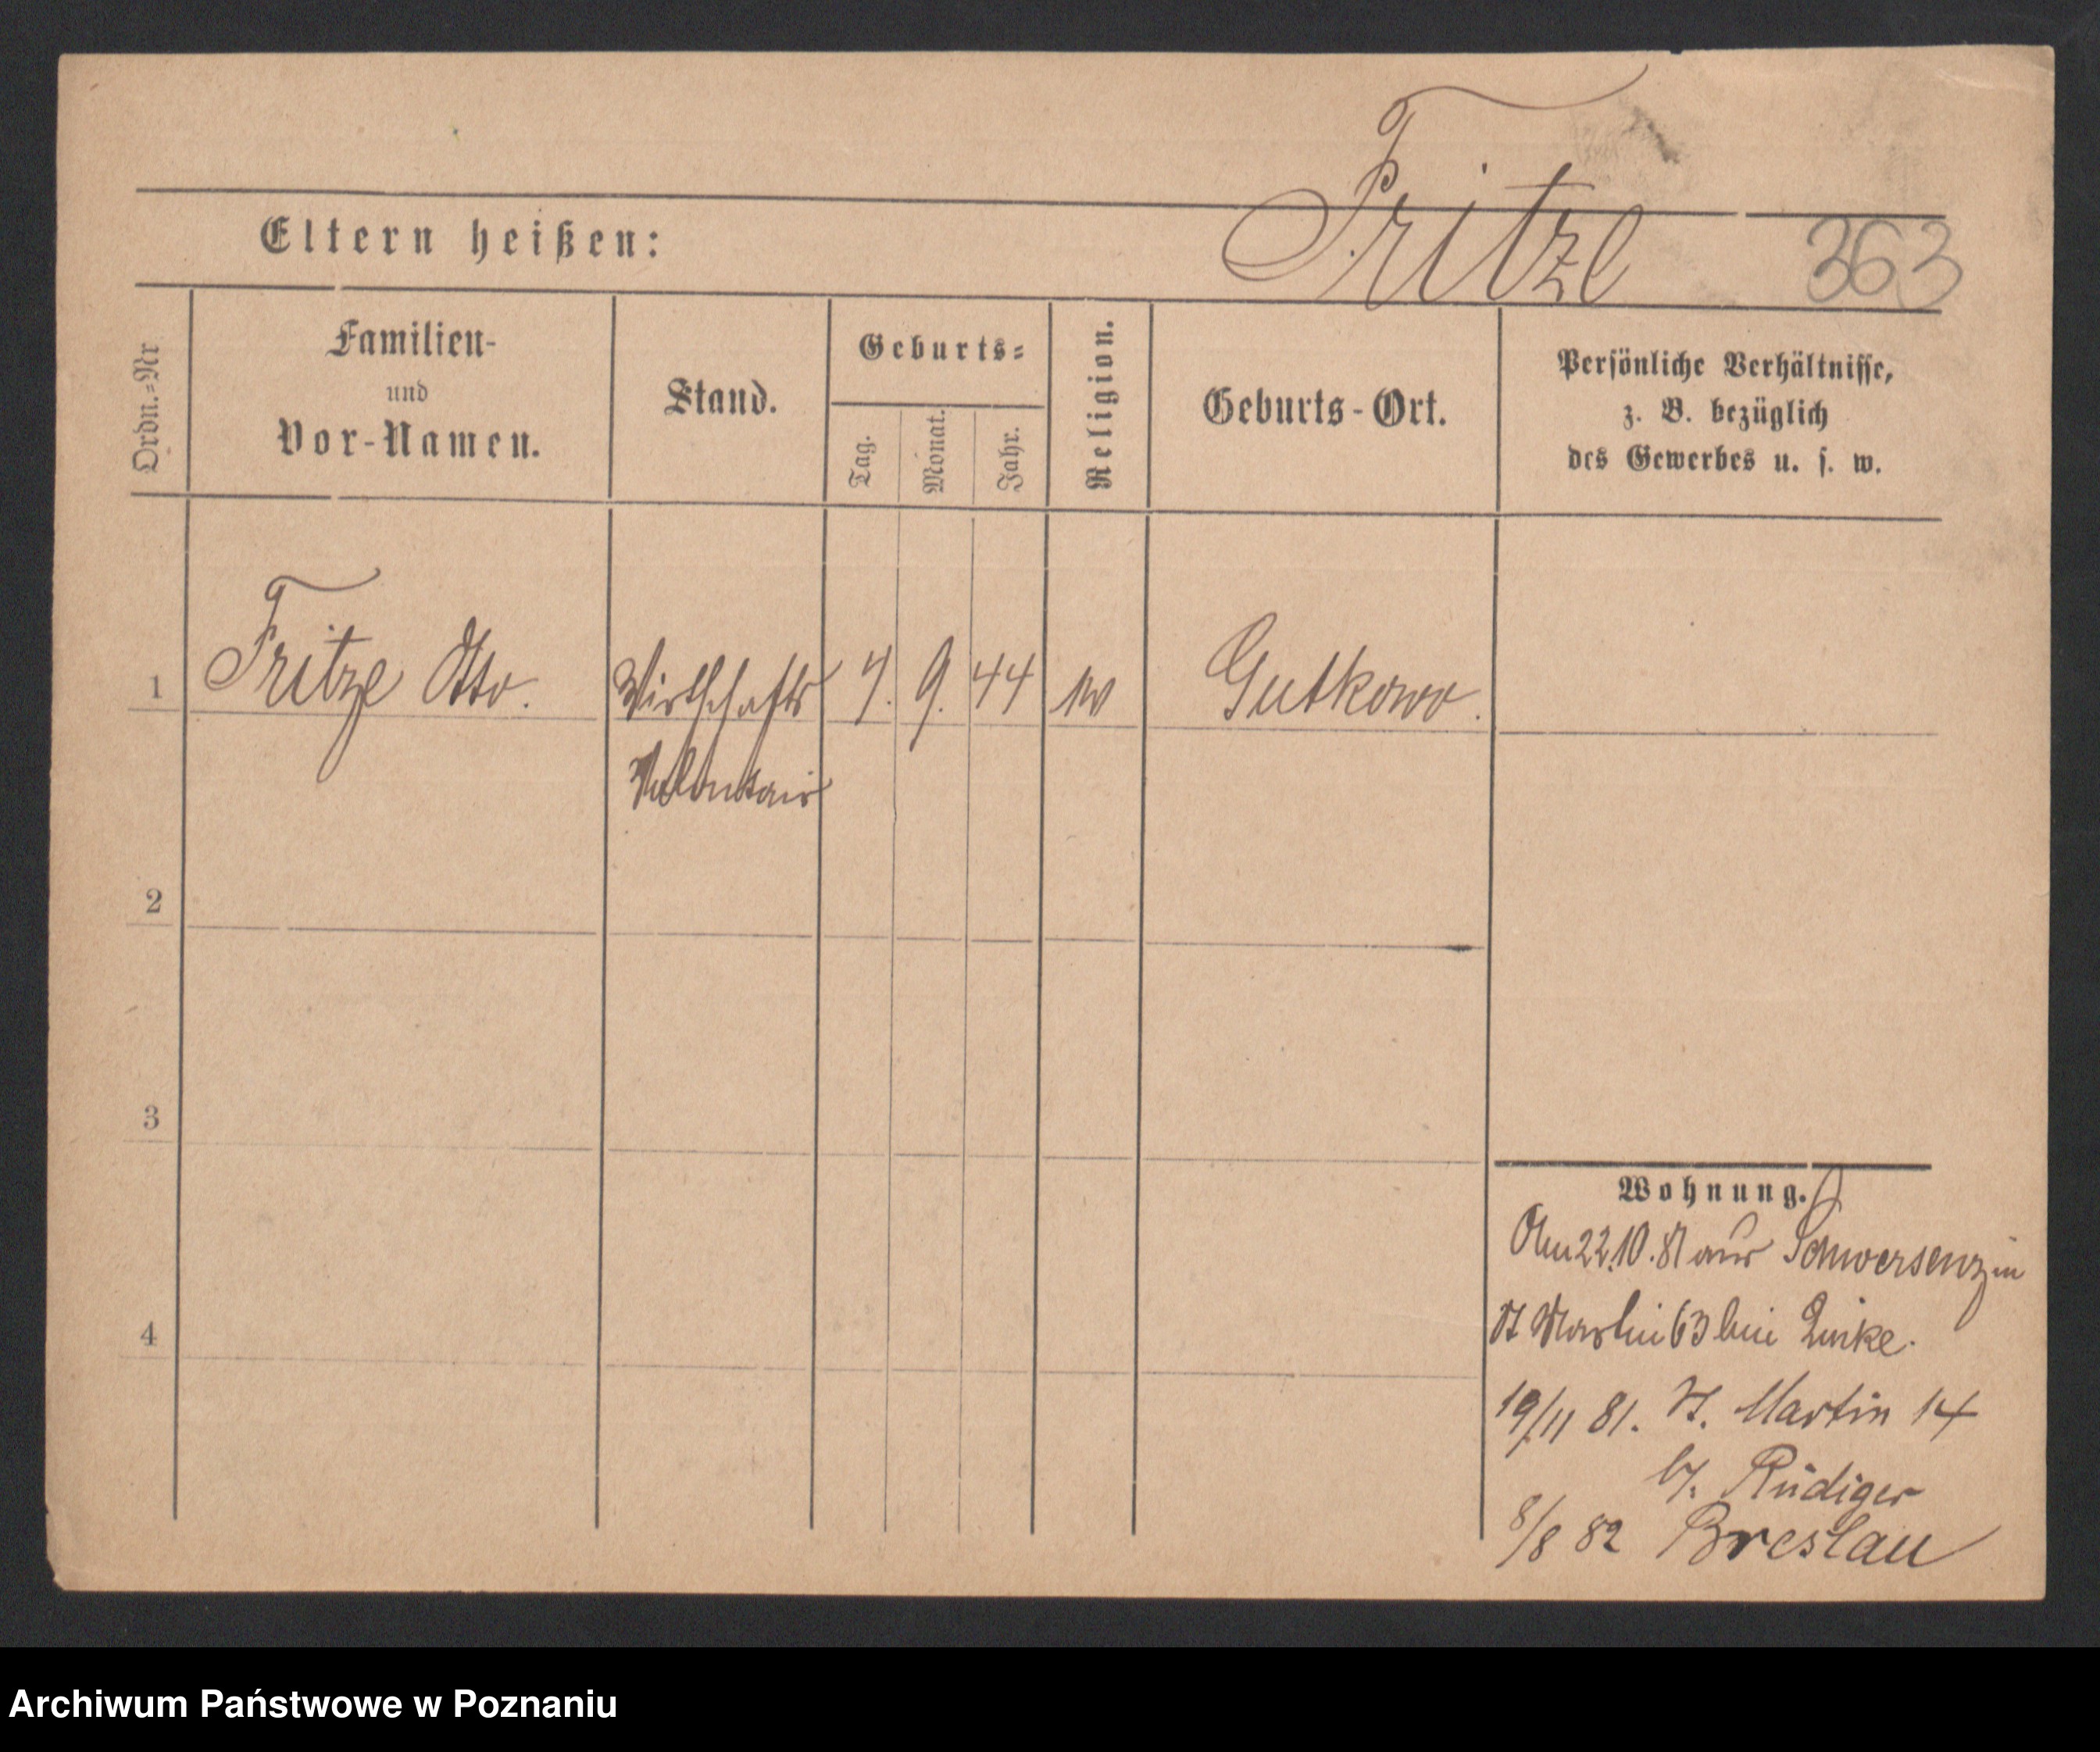 Fritze
363
Eltern heißen:
Ordn.=Nr
Familien-
und
Vor-Namen.
Stand.
Geburts=
Tag.
Monat.
Jahr.
Religion.
Geburts-Ort.
Persönliche Verhältnisse,
z. B. bezüglich
des Gewerbes u. s. w.
1
Fritze Otto.
Wirthschafts
Volontair
7. 9. 44
Gutkowo.
2
3
4
Wohnung.
Am 22.10.81 aus Schwersenz in
St Martin 63 bei Linke.
19/11 81. St. Martin 14
b/. Rüdiger
8/8 82 Breslau
Archiwum Państwowe w Poznaniu